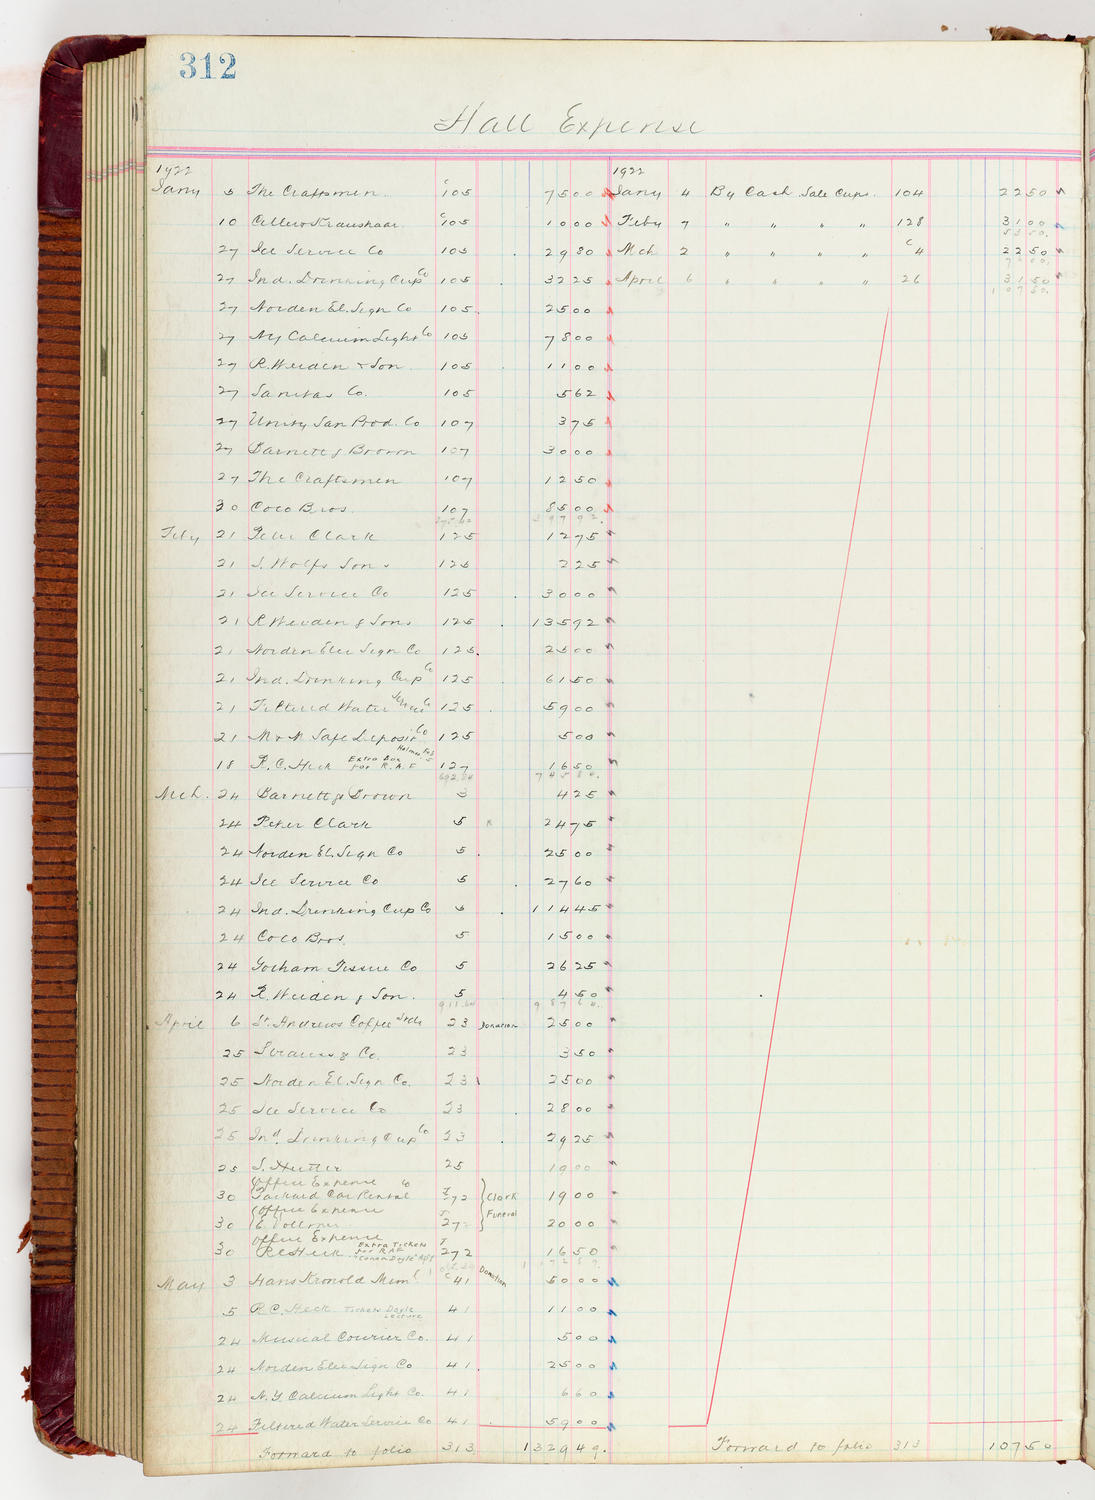 312
Hall Expense
1922
Jany 5 The Craftsmen C105 7500
10 105 1000
27 Ice Service Co 105 2980
27 Ind. Drinking Cup Co 105 3225
27 Norden El. Sign Co 105 2500
27 NY Calcium Light Co 105 7800
27 R. Weiden & Son 105 1100
27 Sanitas Co. 105 562
27 Unity San Prod. Co 107 375
27 Barnett & Brown 107 3000
27 The Craftsmen 107 1250
30 Coco Bros. 107 8500
39792.
Feby 21 Peter Clark 125 1275
21 J. Wolfs Sons 125 225
21 Ice Service Co 125 3000
21 R Weiden & Sons 125 13592
21 Norden Elec Sign Co 125 2500
21 Ind. Drinking Cup Co 125 6150
21 Filtered Water Service Co 125 5900
21 M & M Safe Deposit Co 125 500
18 R. C. Heck Extra Box for R.A.F Holmes Feb 5 127 1650
692.84 74584.
Mch. 24 Barnett & Brown 3 425
24 Peter Clark 5 2475
24 Norden El. Sign Co 5 2500
24 Ice Service Co 5 2760
24 Ind. Drinking Cup Co 5 11445
24 Coco Bros. 5 1500
24 Gotham Tissue Co 5 2625
24 R. Weiden & Son. 5 450
911.64 98764.
April 6 St. Andrews Coffee Stds 23 Donation 2500
25 Strauss & Co. 23 350
25 Norden El. Sign Co. 23 2500
25 Ice Service Co 23 2800
25 Ind. Drinking Cup Co 23 2925
25 25 1900
Office Expense
30 Packard Car Rental J272 Clark 1900
Office Expense Funeral
30 J272 2000
Office Expense
30 RC Heck Extra Tickets for RAF "Conan Doyle" Apl J272 1650
May 3 Hans Kronold Meml C41 Donation 5000
5 R. C. Heck Tickets Doyle Lecture 41 1100
24 Musical Courier Co. 41 500
24 Norden Elec Sign Co 41 2500
24 N.Y. Calcium Light Co. 41 660
24 Filtered Water Service Co 41 5900
Forward to folio 313 132949.
1922
Jany 4 By Cash Sale Cups. 104 2250
Feby 7 " " " " 128 3100
5350.
Mch 2 " " " " C4 2250
7600.
April 6 " " " " 26 3150
10750.
Forward to folio 313 10750